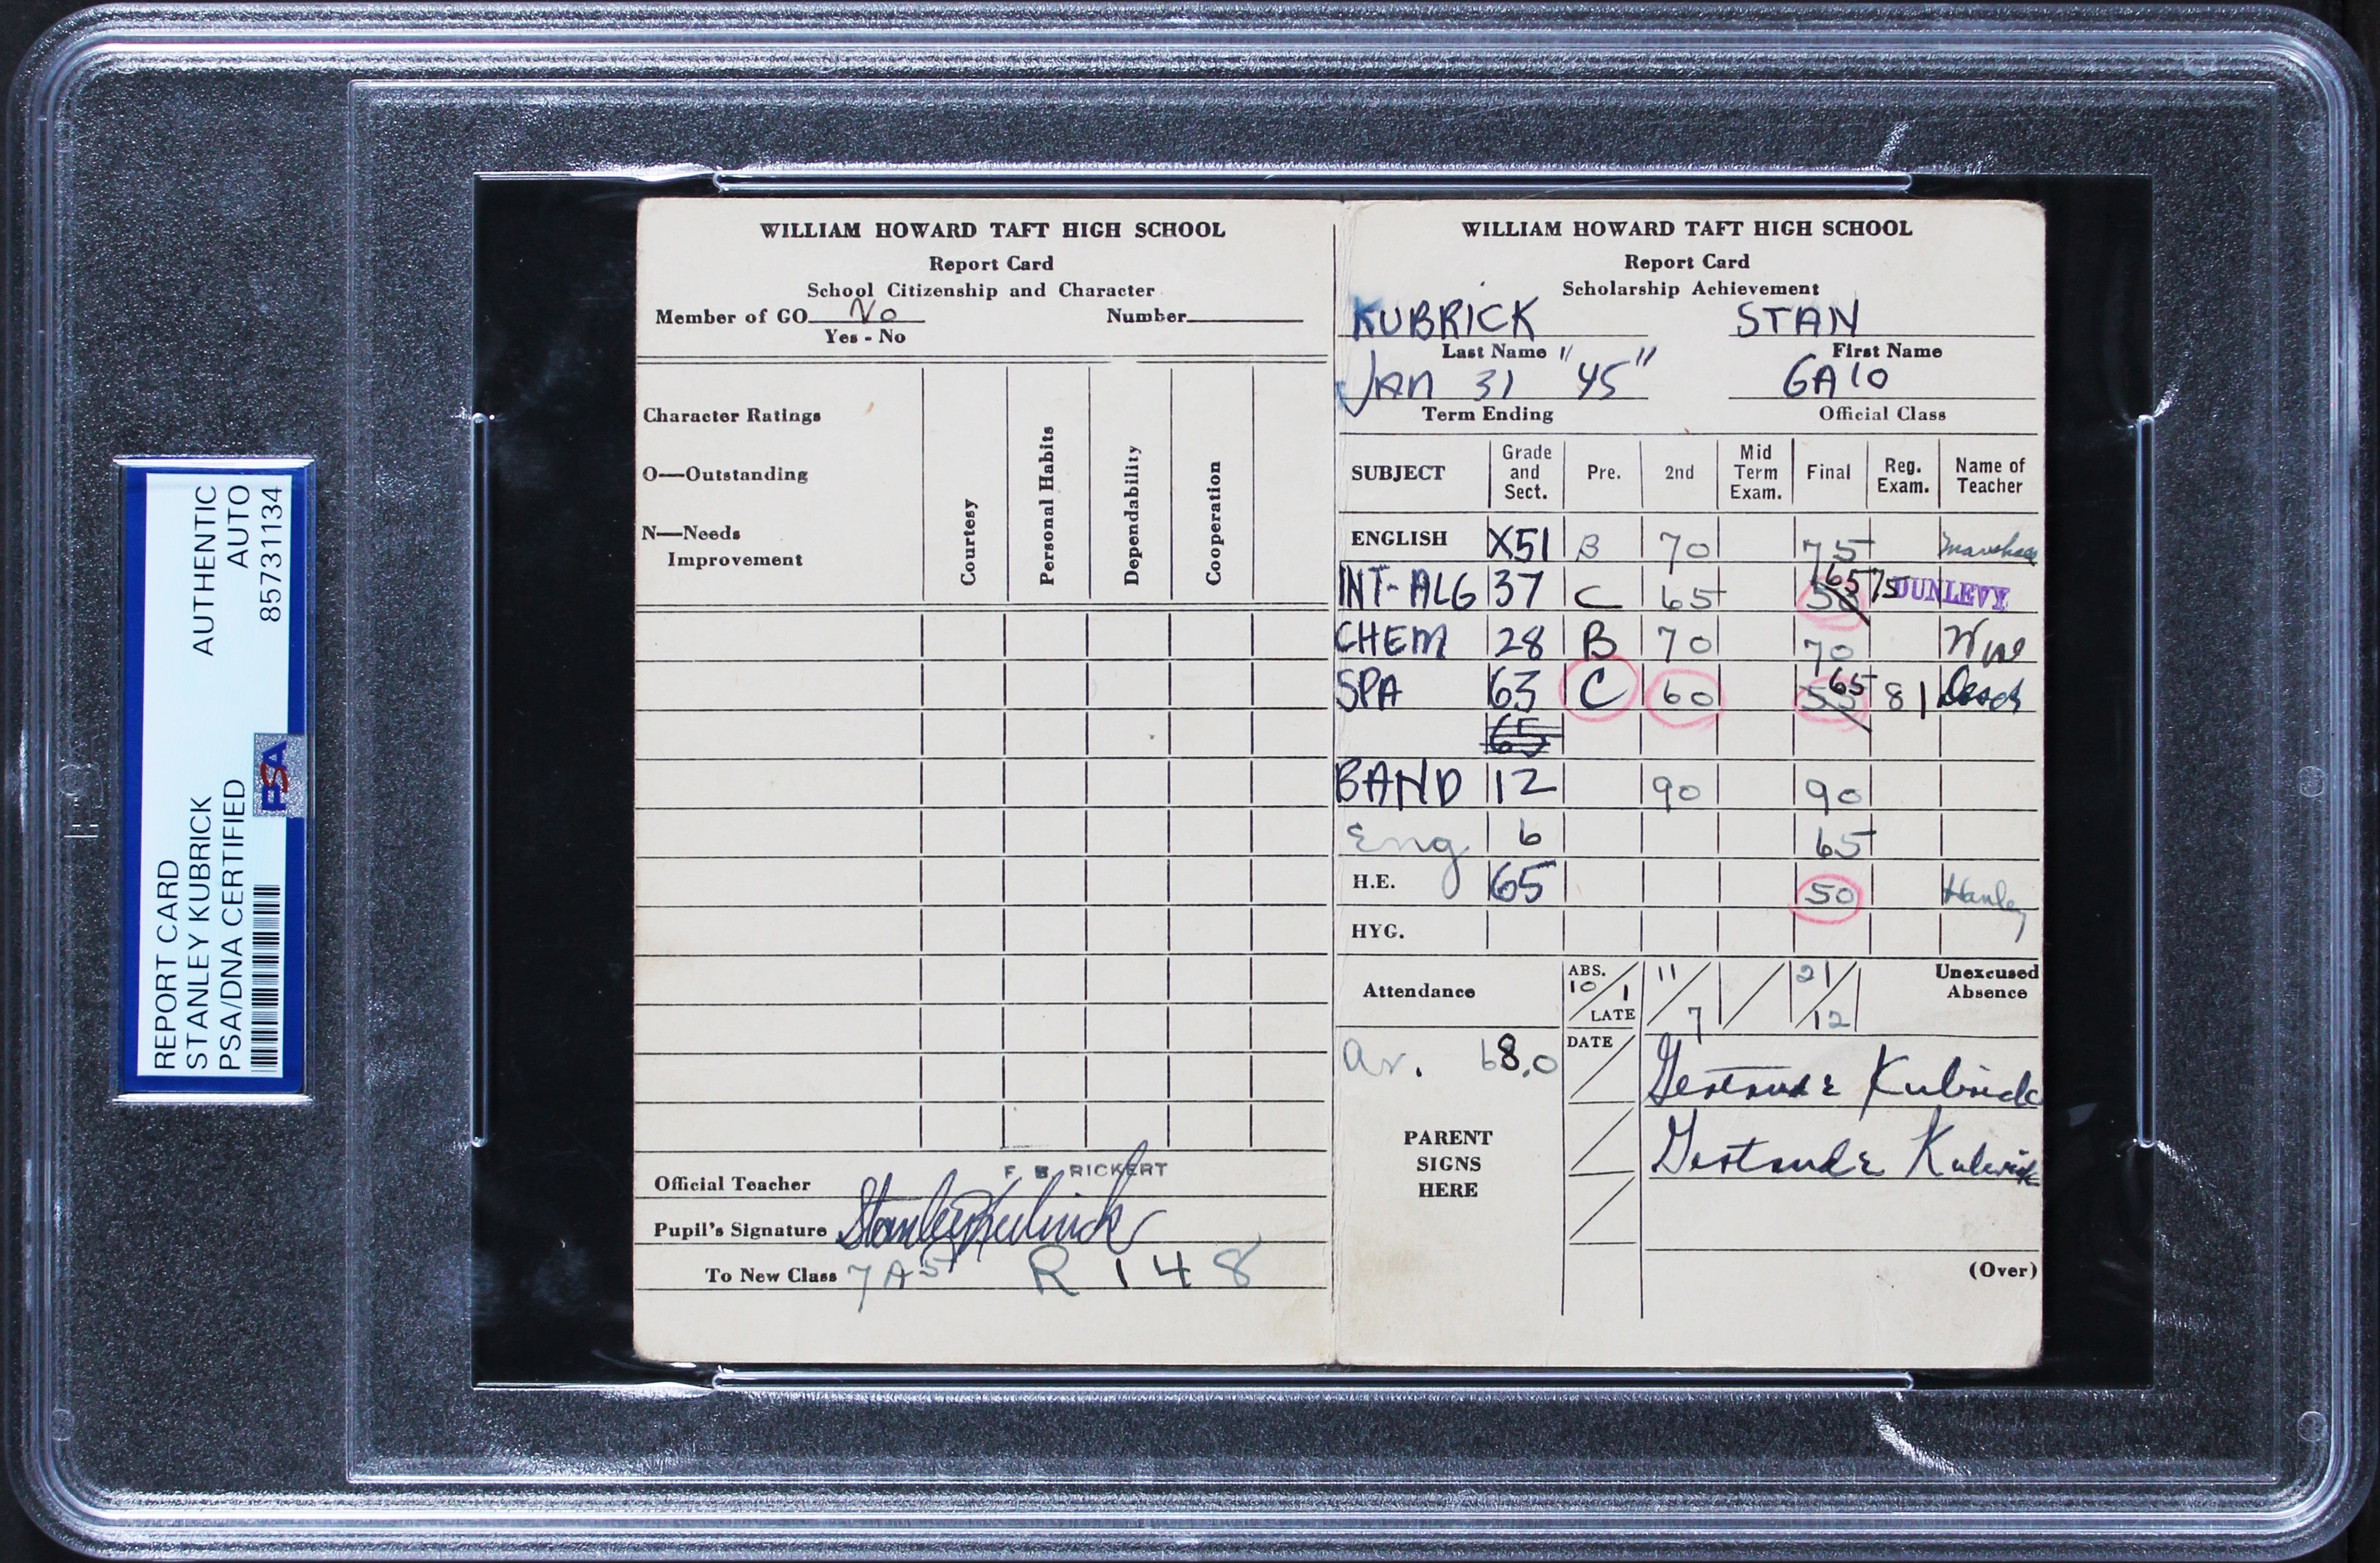 REPORT CARD
STANLEY KUBRICK
PSA/DNA CERTIFIED
AUTHENTIC
AUTO
85731134
PSA
WILLIAM HOWARD TAFT HIGH SCHOOL
Report Card
School Citizenship and Character
Member of GO No Number
Yes - No
Character Ratings
O—Outstanding
N—Needs
Improvement
Courtesy
Personal Habits
Dependability
Cooperation
F. B. RICKERT
Official Teacher
Pupil's Signature Stanley Kubrick
To New Class 7A5 R 148
WILLIAM HOWARD TAFT HIGH SCHOOL
Report Card
Scholarship Achievement
KUBRICK STAN
Last Name First Name
JAN 31 "45" 6A10
Term Ending Official Class
SUBJECT Grade and Sect. Pre. 2nd Mid Term Exam. Final Reg. Exam. Name of Teacher
ENGLISH X51 B 70 75
INT-ALG 37 C 65 50 65 75 DUNLEVY
CHEM 28 B 70 70
SPA 63 C 60 55 65 81
65
BAND 12 90 90
Eng 6 65
H.E. 65 50 Hanley
HYG.
Attendance ABS. 10 / 1 LATE 11 / 7 21 / 12 Unexcused Absence
Av. 68.0 DATE Gertrude Kubrick
PARENT SIGNS HERE Gertrude Kubrick
(Over)